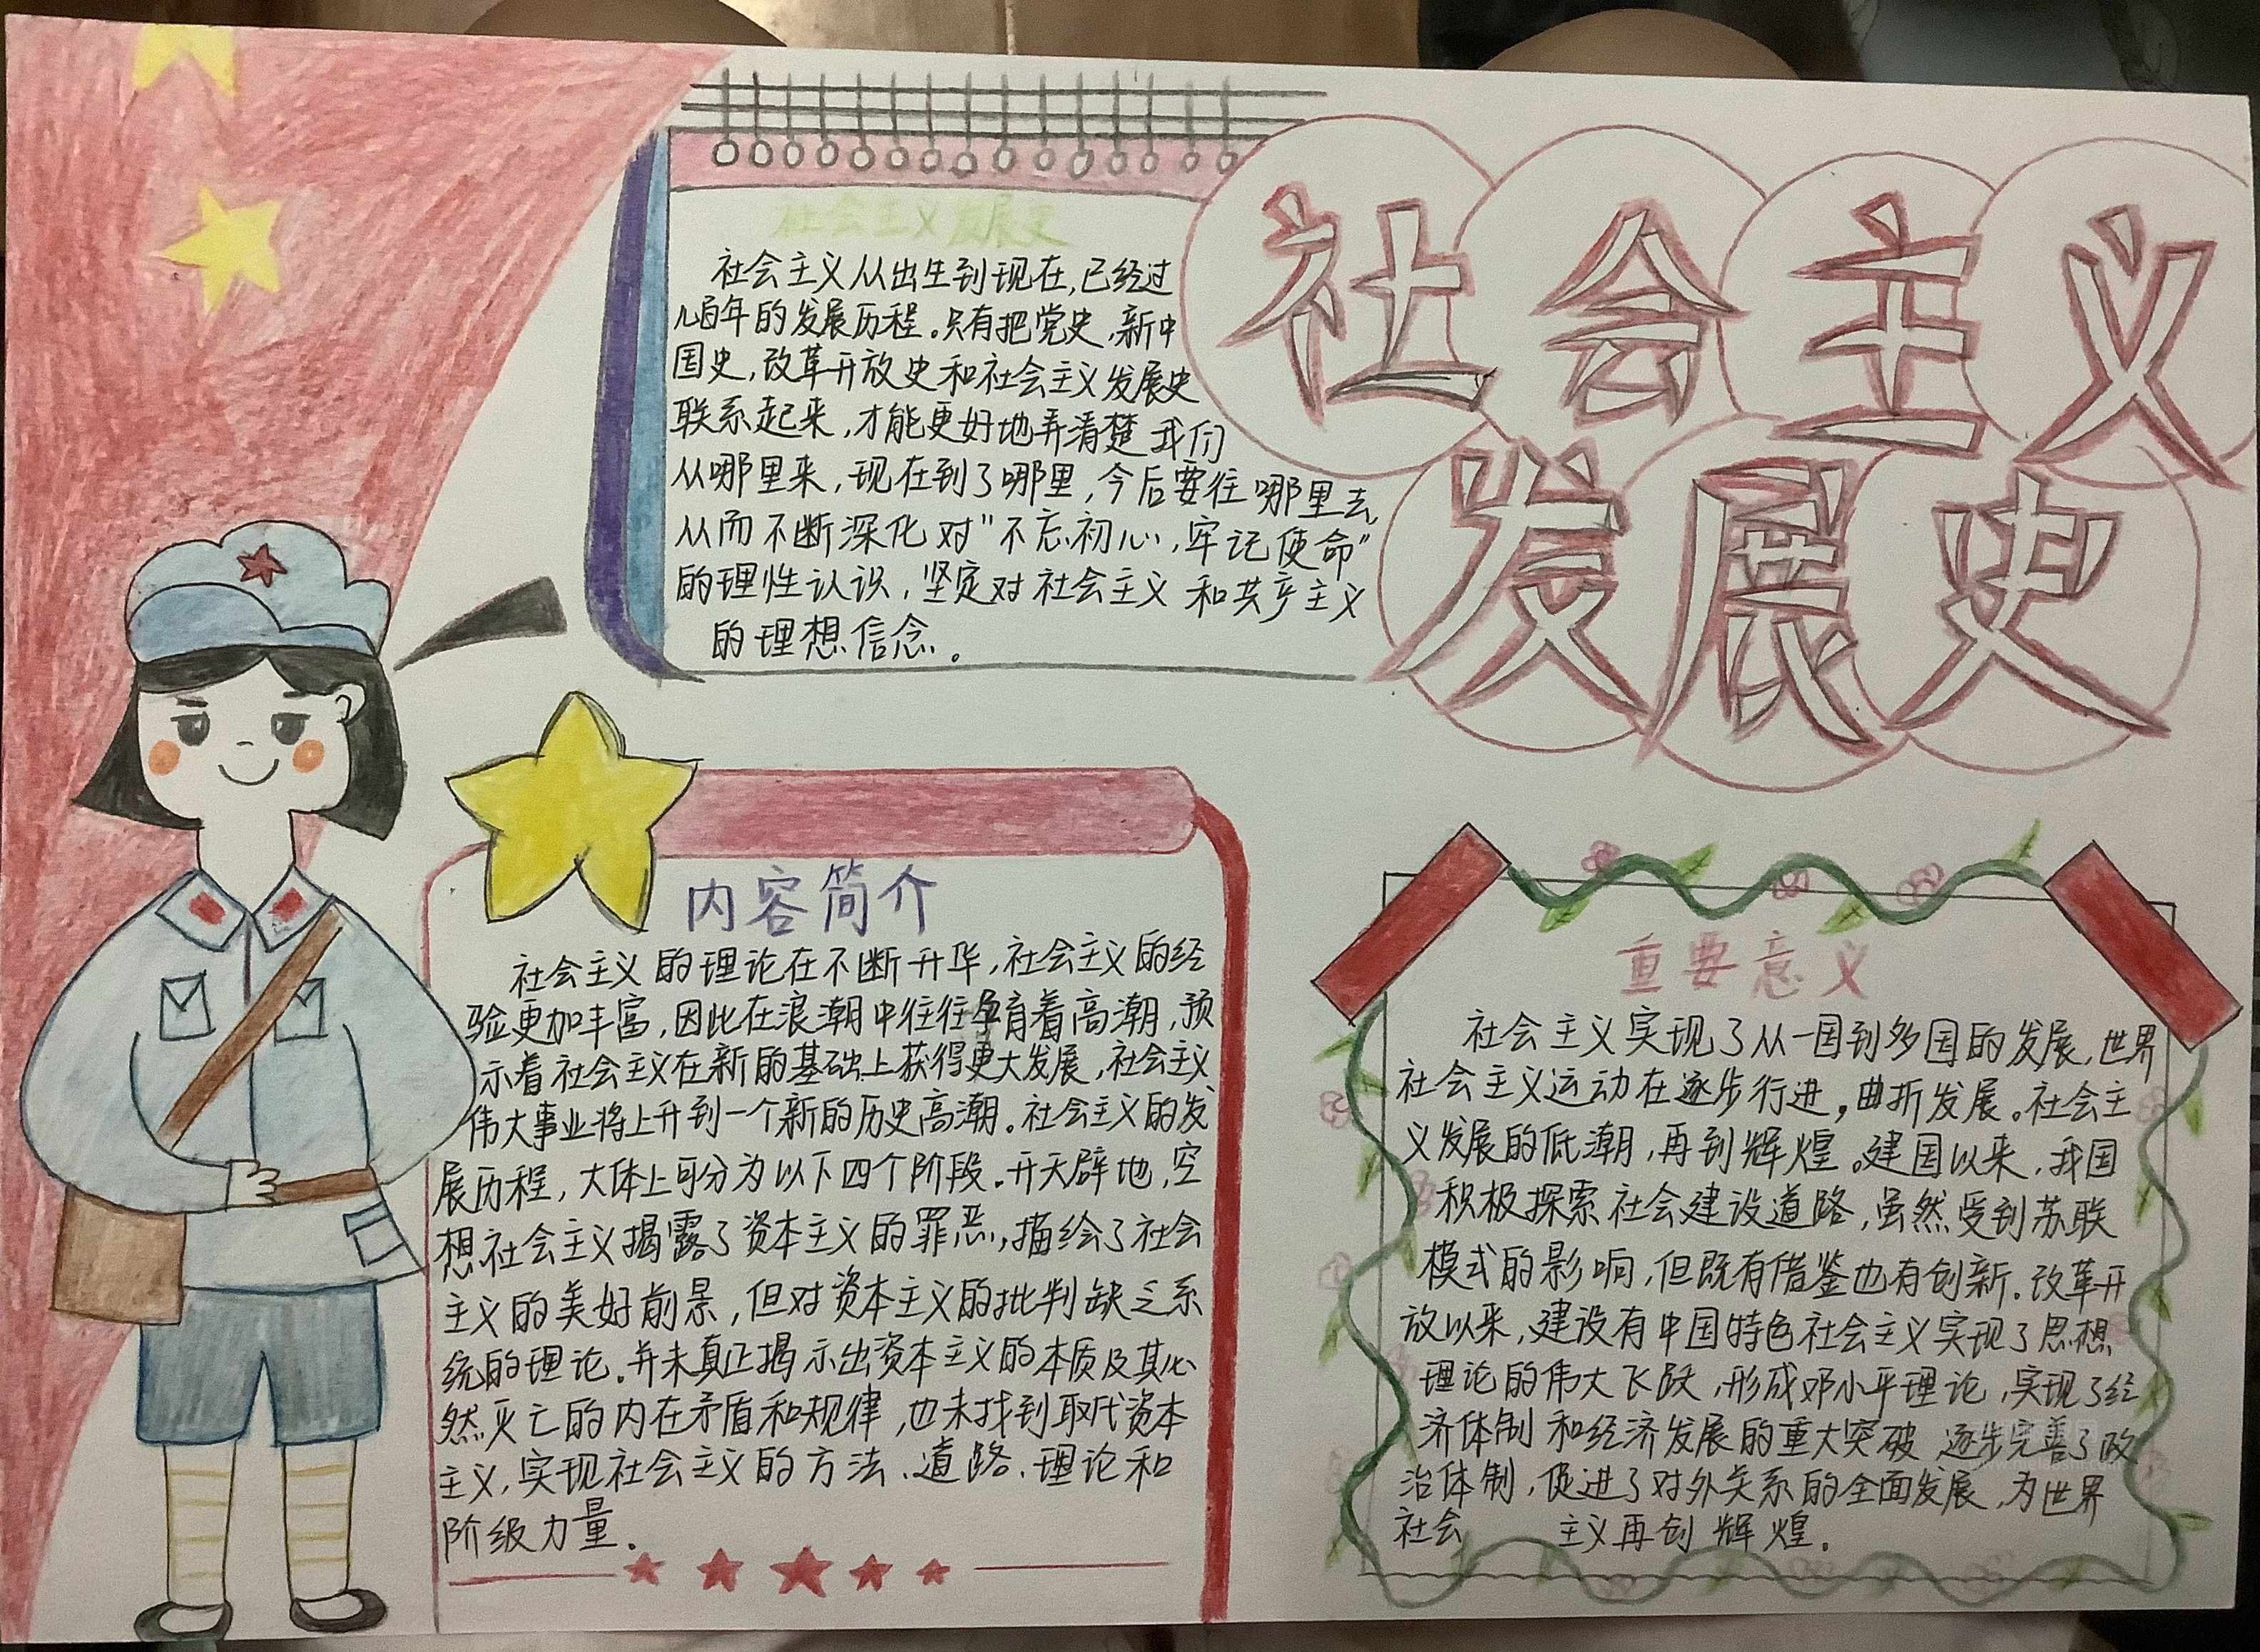 社会主义
发展史
社会主义发展史
社会主义从出生到现在,已经过
几百年的发展历程。只有把党史,新中
国史,改革开放史和社会主义发展史
联系起来,才能更好地弄清楚我们
从哪里来,现在到了哪里,今后要往哪里去,
从而不断深化对"不忘初心,牢记使命"
的理性认识,坚定对社会主义和共产主义
的理想信念。
内容简介
社会主义的理论在不断升华,社会主义的经
验更加丰富,因此在浪潮中往往孕育着高潮,预
示着社会主义在新的基础上获得更大发展,社会主义
伟大事业将上升到一个新的历史高潮。社会主义的发
展历程,大体上可分为以下四个阶段.开天辟地,空
想社会主义揭露了资本主义的罪恶,描绘了社会
主义的美好前景,但对资本主义的批判缺乏系
统的理论.并未真正揭示出资本主义的本质及其必
然灭亡的内在矛盾和规律,也未找到取代资本
主义,实现社会主义的方法、道路、理论和
阶级力量.
重要意义
社会主义实现了从一国到多国的发展,世界
社会主义运动在逐步行进,曲折发展。社会主
义发展的低潮,再到辉煌。建国以来,我国
积极探索社会建设道路,虽然受到苏联
模式的影响,但既有借鉴也有创新.改革开
放以来,建设有中国特色社会主义实现了思想
理论的伟大飞跃,形成邓小平理论,实现了经
济体制和经济发展的重大突破 逐步完善了政
治体制,促进了对外关系的全面发展,为世界
社会 主义再创辉煌.